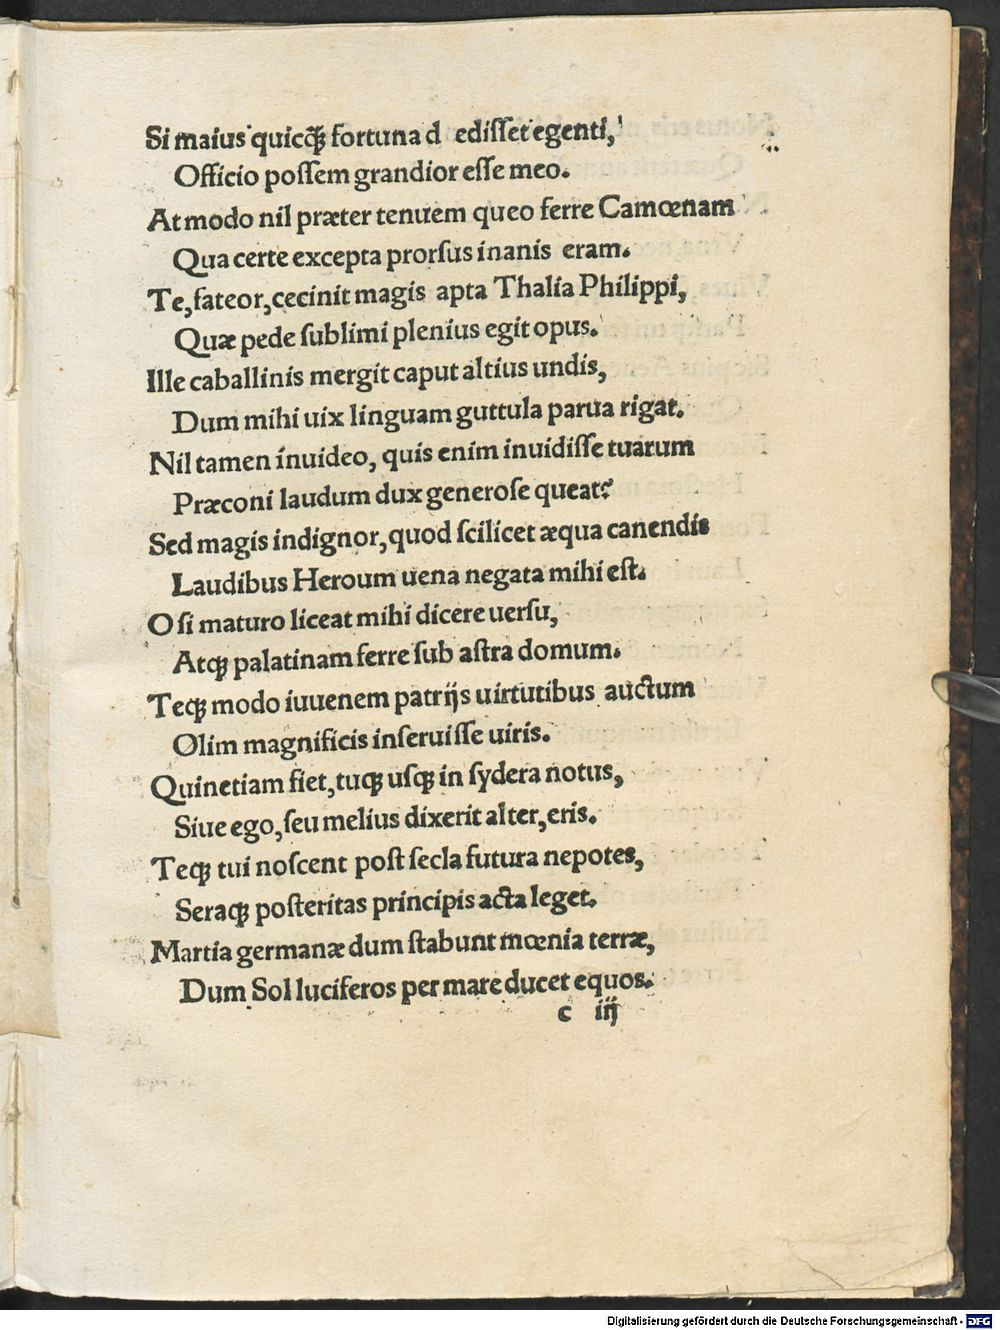 Si maius quicq̃ fortuna d edisset egenti,
Officio possem grandior esse meo.
At modo nil præter tenuem queo ferre Camœnam
Qua certe excepta prorsus inanis eram.
Te, fateor, cecinit magis apta Thalia Philippi,
Quæ pede sublimi plenius egit opus.
Ille caballinis mergit caput altius undis,
Dum mihi uix linguam guttula parua rigat.
Nil tamen inuideo, quis enim inuidisse tuarum
Præconi laudum dux generose queat?
Sed magis indignor, quod scilicet æqua canendis
Laudibus Heroum uena negata mihi est.
O si maturo liceat mihi dicere uersu,
Atqꝫ palatinam ferre sub astra domum.
Teqꝫ modo iuuenem patrijs uirtutibus auctum
Olim magnificis inseruisse uiris.
Quinetiam fiet, tuqꝫ usqꝫ in sydera notus,
Siue ego, seu melius dixerit alter, eris.
Teqꝫ tui noscent post secla futura nepotes,
Seraqꝫ posteritas principis acta leget.
Martia germanæ dum stabunt mœnia terræ,
Dum Sol luciferos per mare ducet equos.
c iij
Digitalisierung gefördert durch die Deutsche Forschungsgemeinschaft - DFG